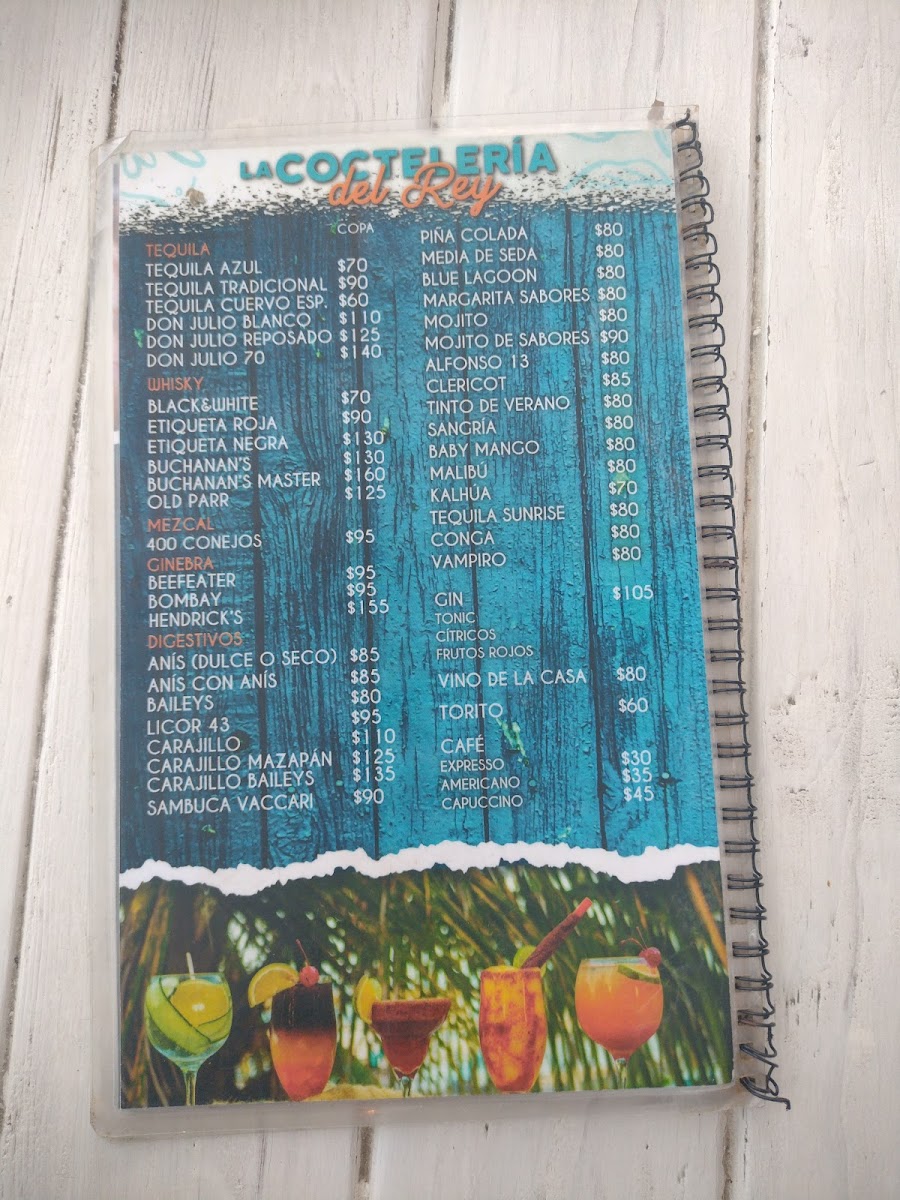 LA COCTELERÍA
del Rey
COPA
TEQUILA
TEQUILA AZUL $70
TEQUILA TRADICIONAL $90
TEQUILA CUERVO ESP. $60
DON JULIO BLANCO $110
DON JULIO REPOSADO $125
DON JULIO 70 $140
WHISKY
BLACK&WHITE $70
ETIQUETA ROJA $90
ETIQUETA NEGRA $130
BUCHANAN'S $130
BUCHANAN'S MASTER $160
OLD PARR $125
MEZCAL
400 CONEJOS $95
GINEBRA
BEEFEATER $95
BOMBAY $95
HENDRICK'S $155
DIGESTIVOS
ANÍS (DULCE O SECO) $85
ANÍS CON ANÍS $85
BAILEYS $80
LICOR 43 $95
CARAJILLO $110
CARAJILLO MAZAPÁN $125
CARAJILLO BAILEYS $135
SAMBUCA VACCARI $90
PIÑA COLADA $80
MEDIA DE SEDA $80
BLUE LAGOON $80
MARGARITA SABORES $80
MOJITO $80
MOJITO DE SABORES $90
ALFONSO 13 $80
CLERICOT $85
TINTO DE VERANO $80
SANGRÍA $80
BABY MANGO $80
MALIBÚ $80
KALHÚA $70
TEQUILA SUNRISE $80
CONGA $80
VAMPIRO $80
GIN $105
TONIC
CÍTRICOS
FRUTOS ROJOS
VINO DE LA CASA $80
TORITO $60
CAFÉ
EXPRESSO $30
AMERICANO $35
CAPUCCINO $45